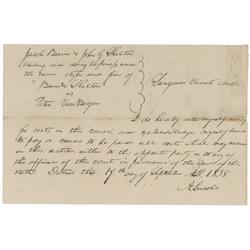 Jacob Bunn & John G Shelton
trading and doing business under
the name style and firm of
Bunn & Shelton
Sangamon Circuit Court
I do hereby enter myself security
for costs in this cause, and acknowledge myself bound
to pay or cause to be paid all costs which may accrue
in this action, either to the opposite party or to any of
the officers of this court in pursuance of the laws of this
state. Dated this 19th day of April AD. 1838
A. Lincoln